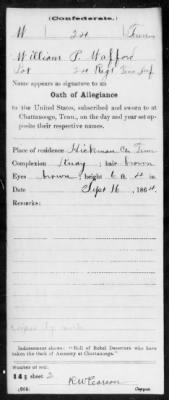 (Confederate.)
W 2d Tenn
William P. Wafford
Pvt 2d Regt Tenn Inf
Name appears as signature to an
Oath of Allegiance
to the United States, subscribed and sworn to at
Chattanooga, Tenn., on the day and year set opposite their respective names.
Place of residence Hickman Co Tenn
Complexion , hair brown
Eyes brown, height 6 ft. in
Date Sept 16, 1864
Remarks:
Indorsement shows: "Roll of Rebel Deserters who have
taken the Oath of Amnesty at Chattanooga."
Number of roll:
sheet 2
R W Pearson
Copyist.